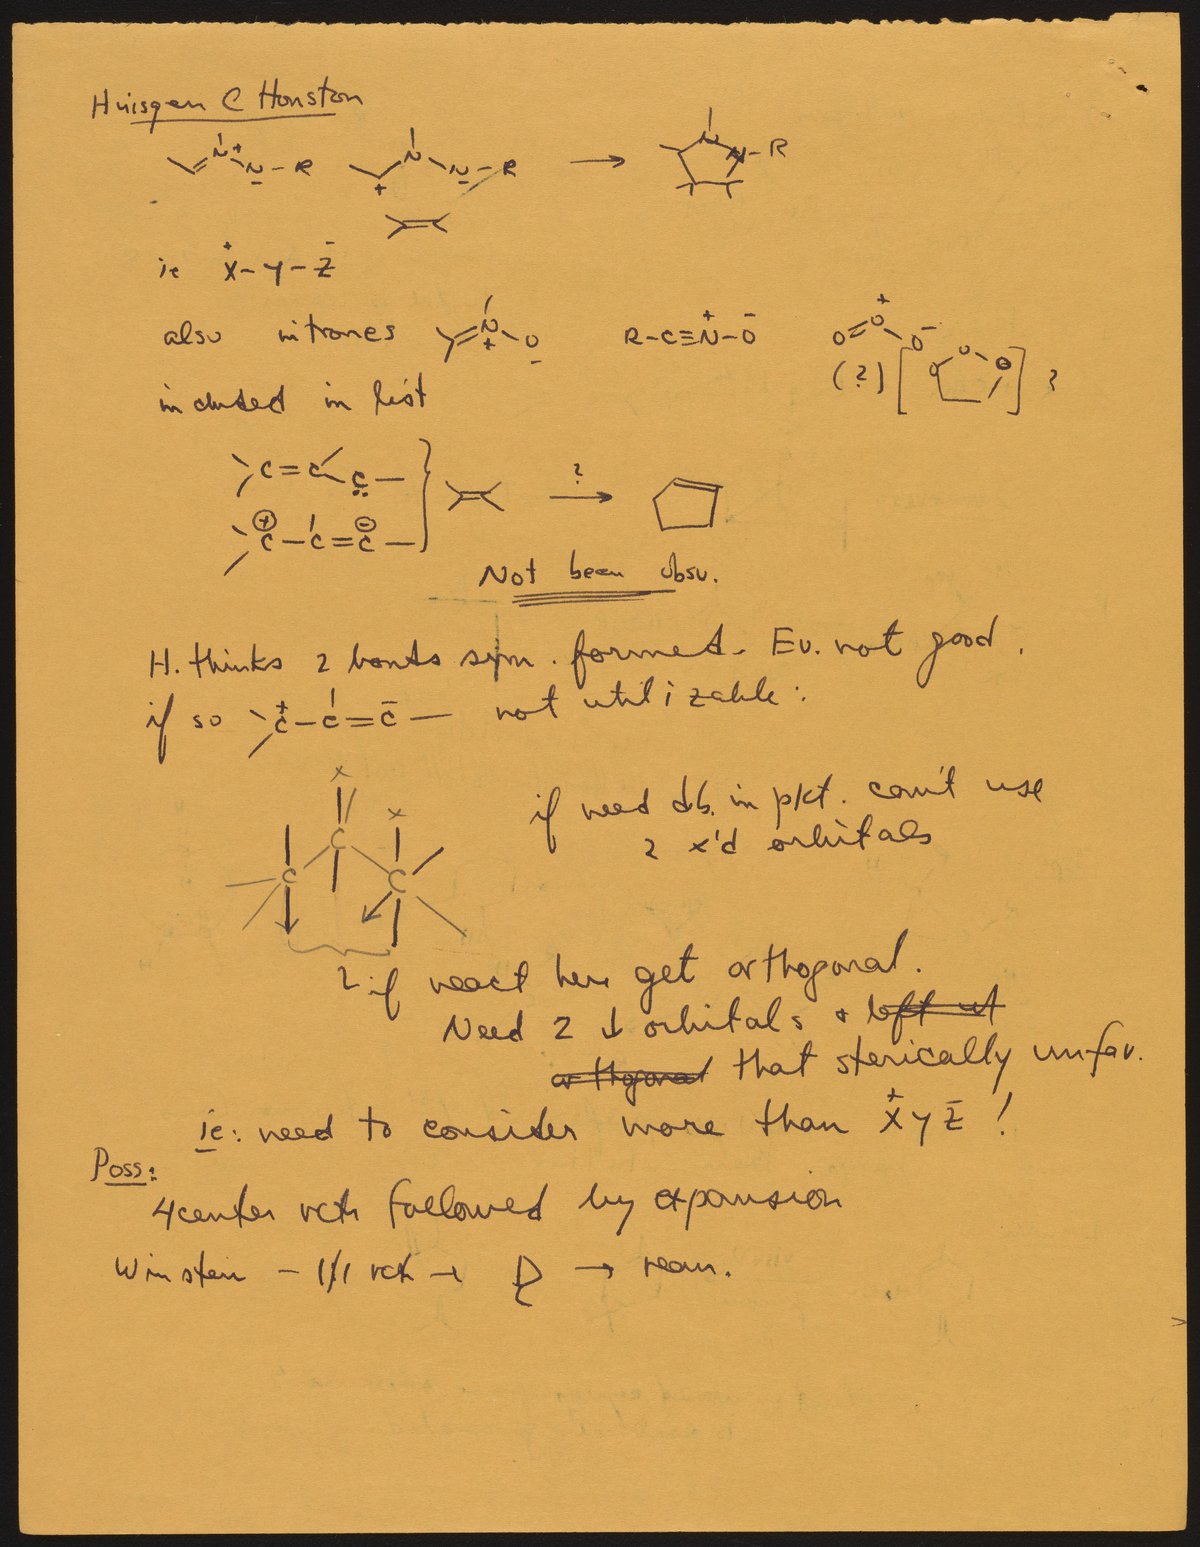 Huisgen C Houston
N+ N - R   N N - R → N N - R
+
ie X+ - Y - Z-
also nitrones N+ O-   R-C≡N+-O-   O=O+ O-
(?) [ O O O ] ?
included in list
C=C C:
? →
⊕C-C=C⊖
Not been obsv.
H. thinks 2 bonds sym. formed. Ev. not good.
if so C+-C=C- not utilizable:
x
x
C
C C
if need db. in pdt. can't use
2 x'd orbitals
2 if react here get orthogonal.
Need 2 ↓ orbitals + left ut
orthogonal that sterically unfav.
ie: need to consider more than X+ Y Z- !
Poss:
4center rctn followed by expansion
Winstein - 1/1 rctn → → rearr.